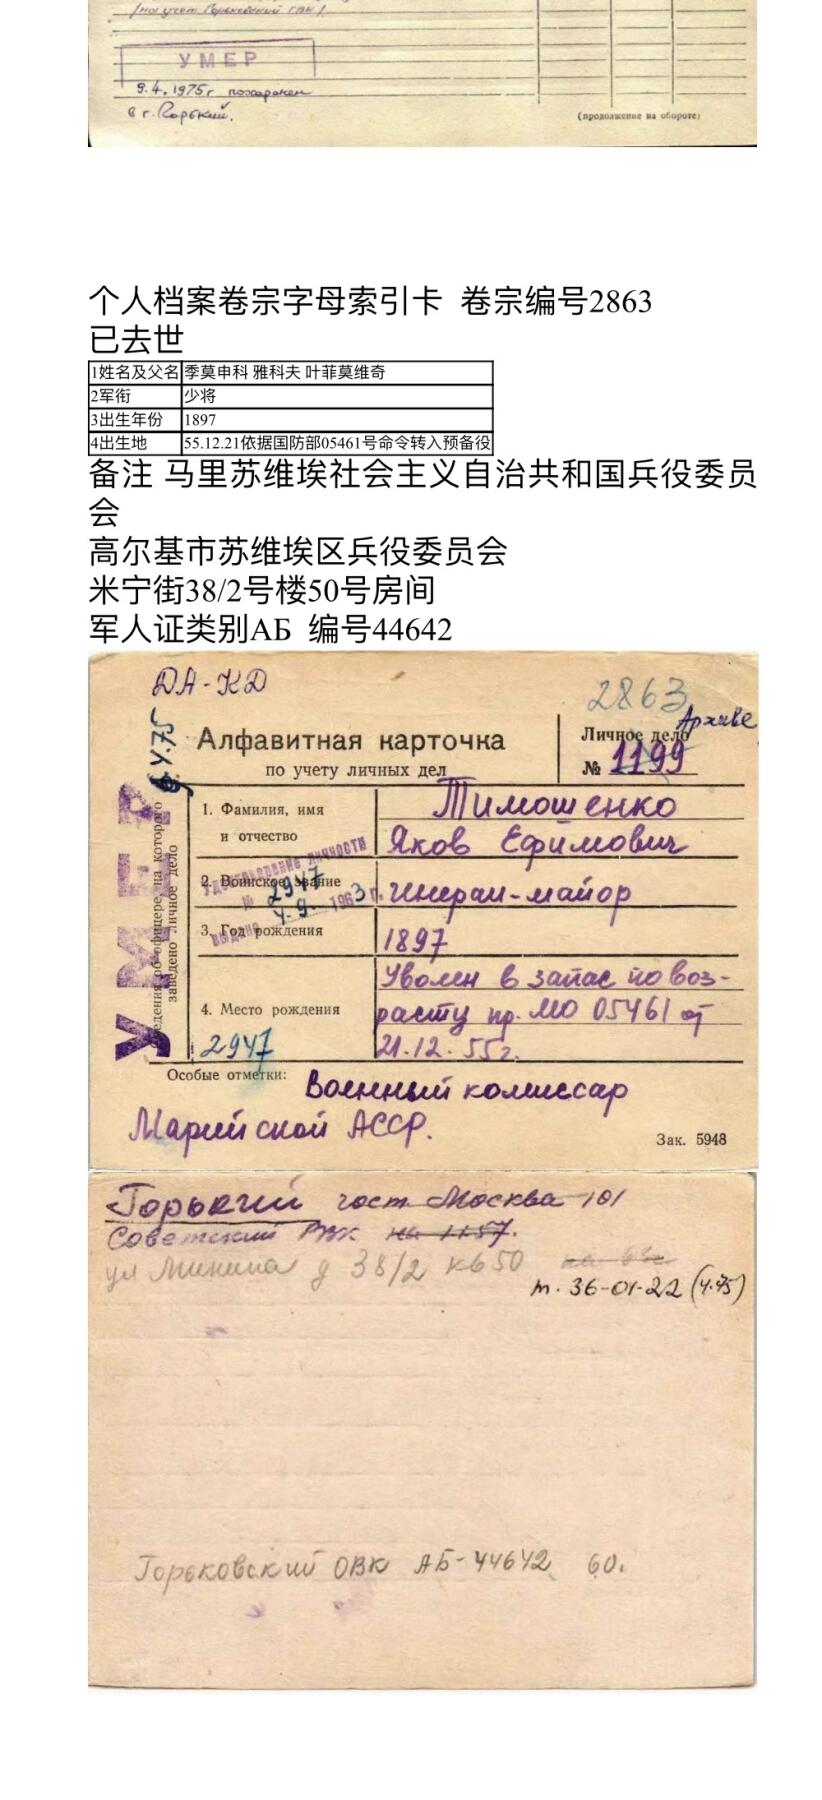 (на учет Горьковский ГВК)
УМЕР
9.4.1975г похоронен
в г. Горький.
(продолжение на обороте)
个人档案卷宗字母索引卡 卷宗编号2863
已去世
1姓名及父名 季莫申科 雅科夫 叶菲莫维奇
2军衔 少将
3出生年份 1897
4出生地 55.12.21依据国防部05461号命令转入预备役
备注 马里苏维埃社会主义自治共和国兵役委员
会
高尔基市苏维埃区兵役委员会
米宁街38/2号楼50号房间
军人证类别АБ 编号44642
ДА-КД
2863
Архиве
Алфавитная карточка
по учету личных дел
Личное дело
№ 1199
УМЕР
Сведения об офицере, на которого
заведено личное дело
1. Фамилия, имя
и отчество
Тимошенко
Яков Ефимович
Удостоверение личности
№ 2947
выдано 4.9. 1963 г.
2. Воинское звание
генерал-майор
3. Год рождения
1897
4. Место рождения
2947
Уволен в запас по воз-
расту пр. МО 05461 от
21.12.55г.
Особые отметки: Военный комиссар
Марийской АССР.
Зак. 5948
Горький гост. Москва 101
Советский РВК на 1.1.57.
ул Минина д 38/2 кв 50
т. 36-01-22 (4.75)
Горьковский ОВК АБ-44642 60.